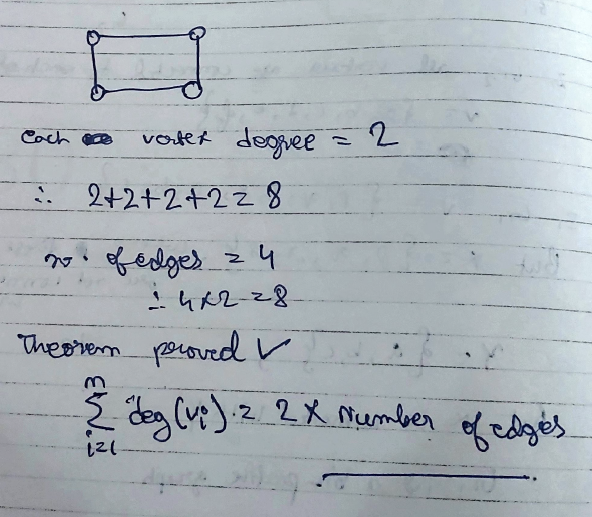 each vertex degree = 2
∴ 2+2+2+2 = 8
no. of edges = 4
∴ 4×2 = 8
Theorem proved ✓
n
∑ deg(vi) = 2 × Number of edges
i=1